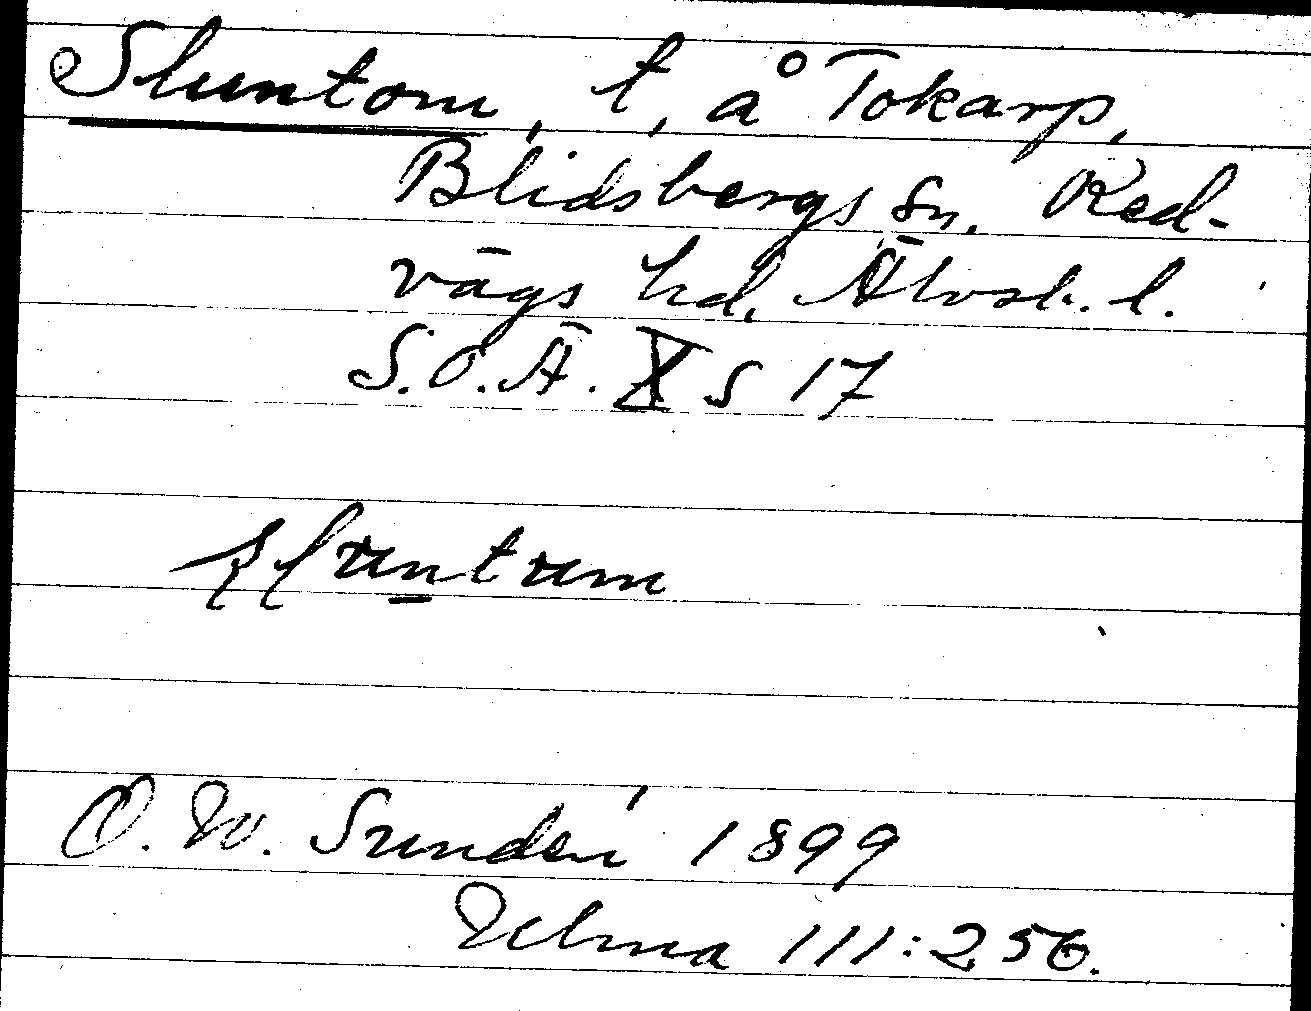 Sluntom, t, å Tokarp,
Blidsbergs sn, Red-
vägs hd, Älvsb. l.
S.O.Ä. X s 17
O. W. Sundén 1899
Ulma 111:256.